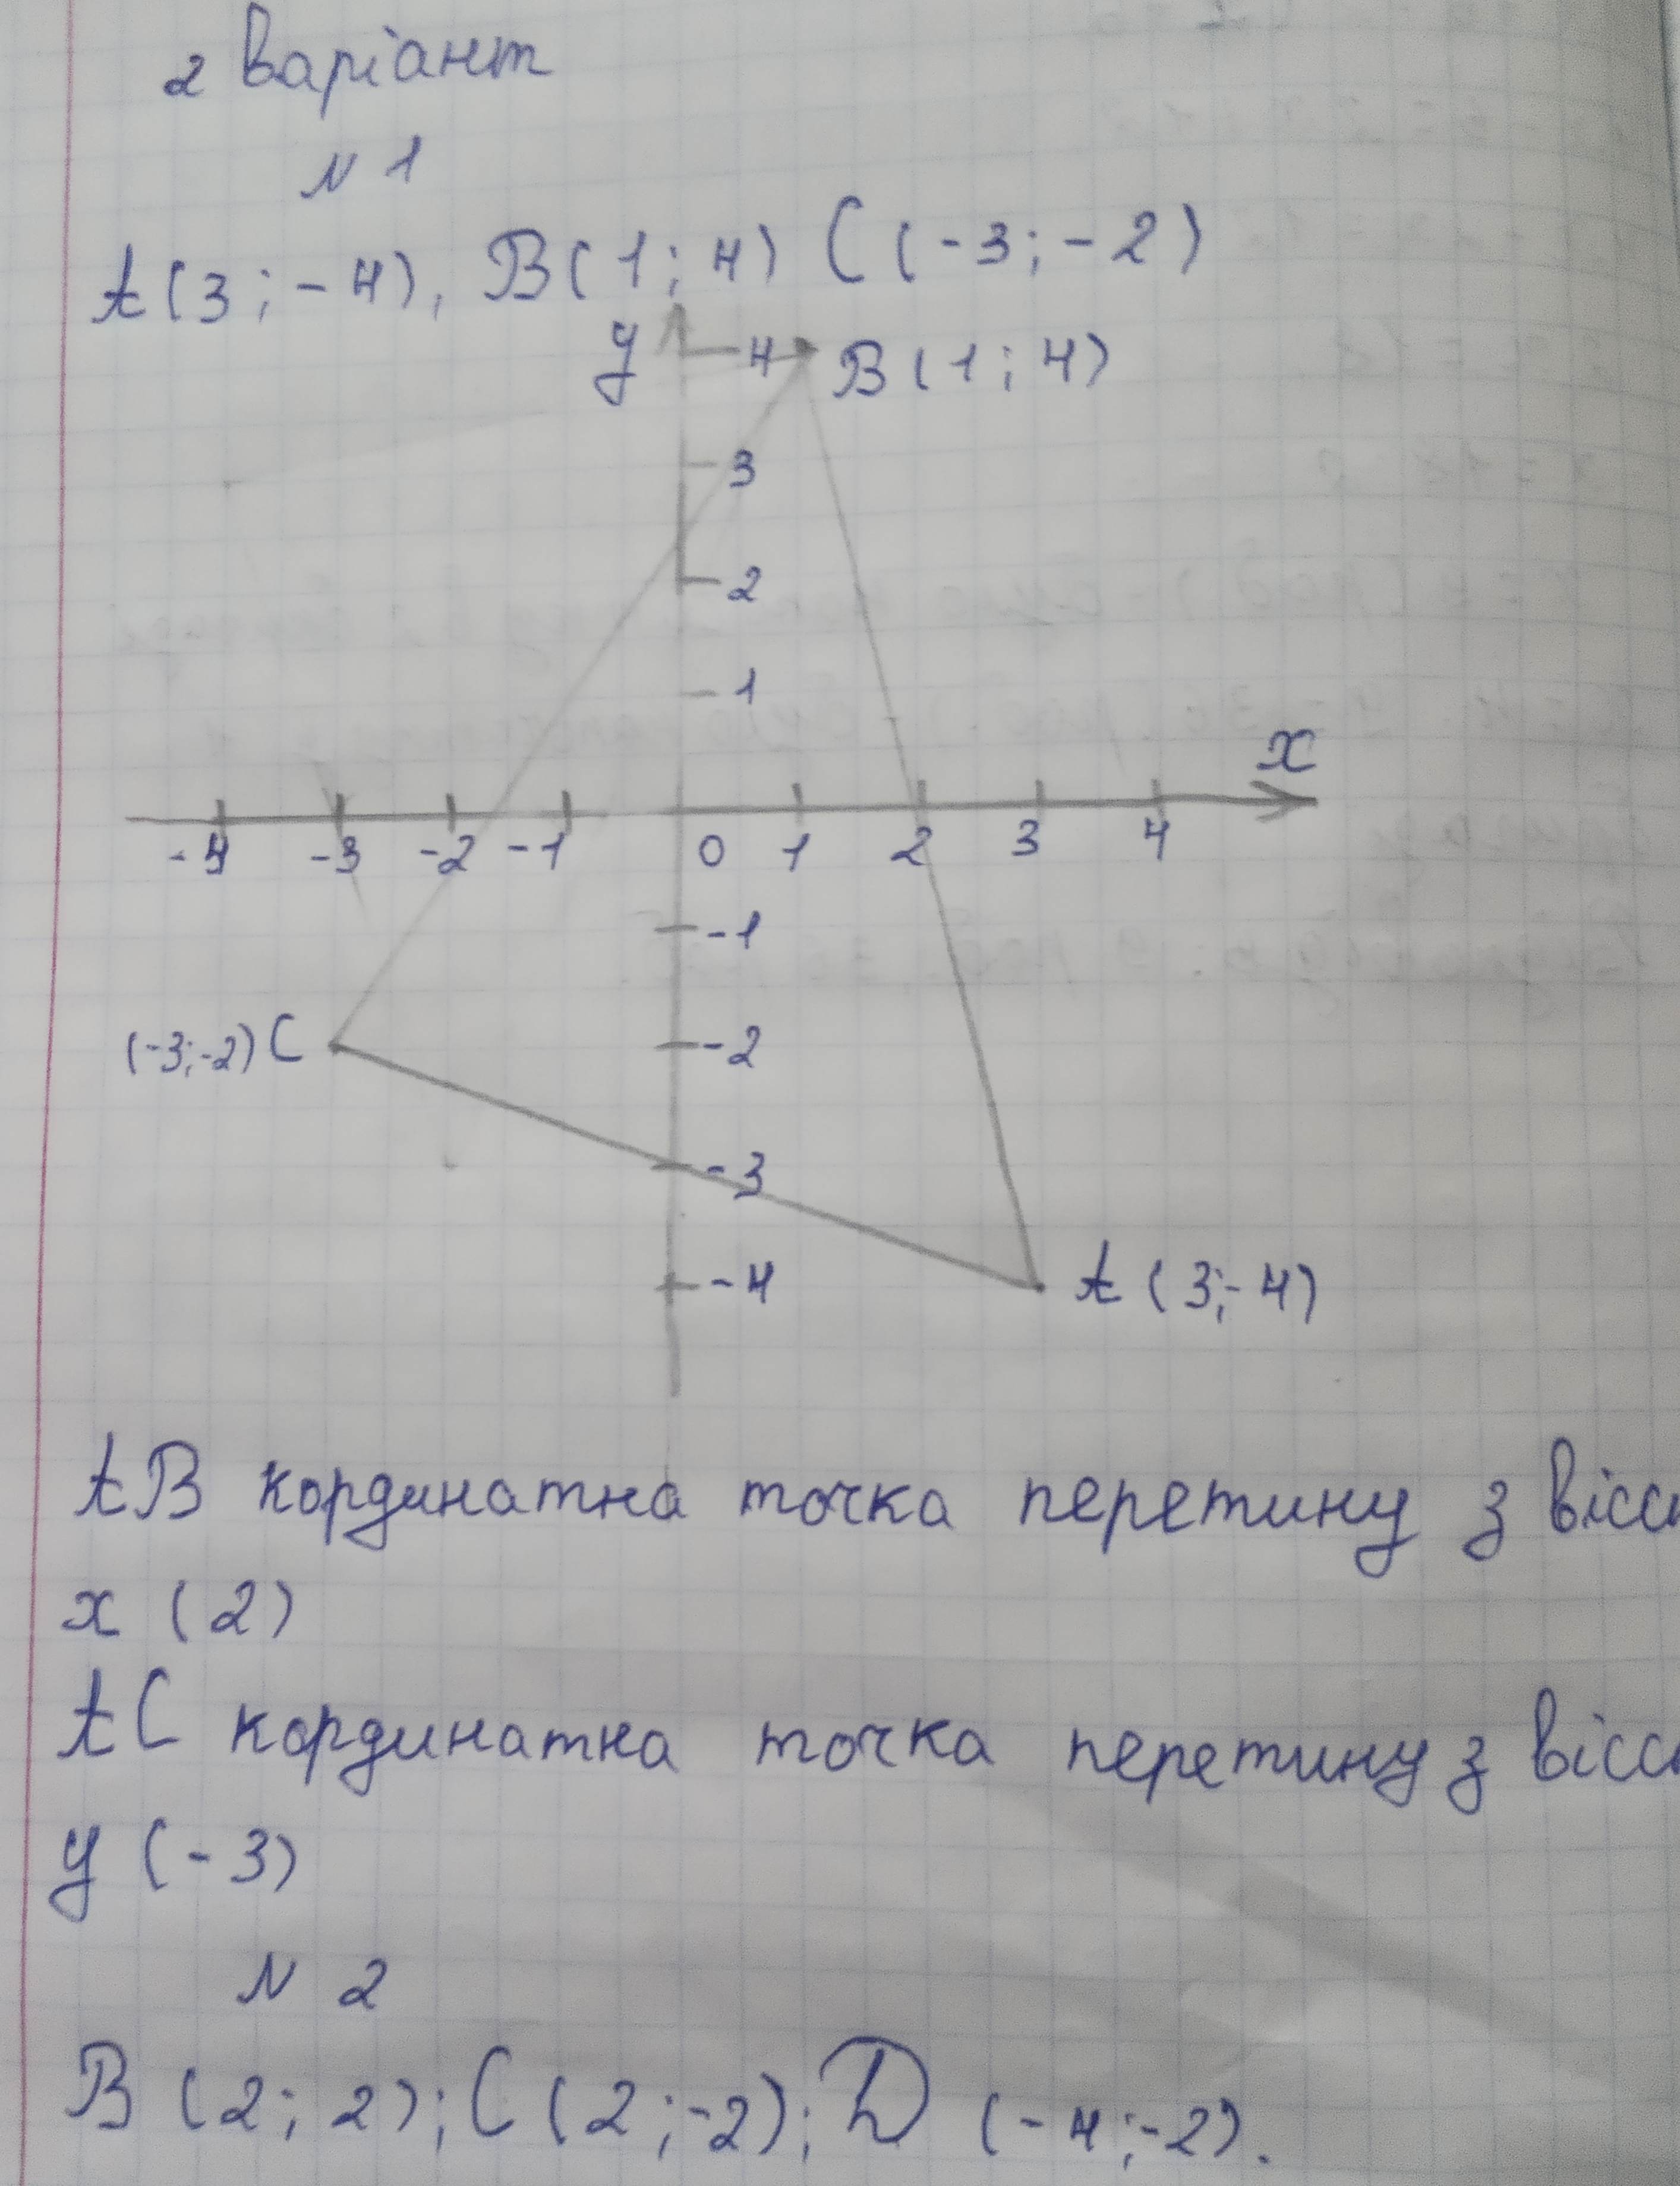 2 варіант
N 1
A(3;-4), B(1;4) C(-3;-2)
y 4 B(1;4)
3
2
1
x
-4 -3 -2 -1 0 1 2 3 4
-1
(-3;-2) C -2
-3
-4 A (3;-4)
AB кординатна точка перетину з
x (2)
AC кординатна точка перетину з
y (-3)
N 2
B (2; 2); C (2;-2); D (-4;-2).